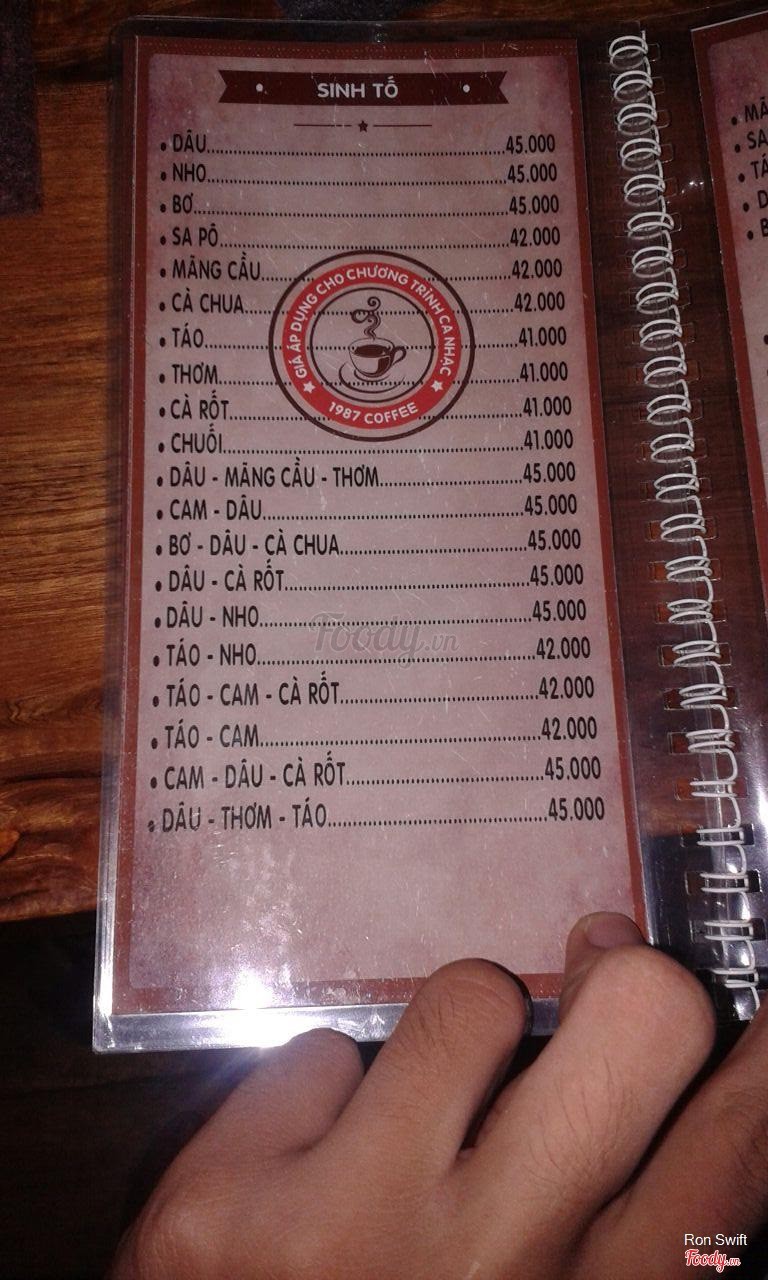 SINH TỐ
• DÂU...45.000
• NHO...45.000
• BƠ...45.000
• SA PÔ...42.000
• MÃNG CẦU...42.000
• CÀ CHUA...42.000
• TÁO...41.000
• THƠM...41.000
• CÀ RỐT...41.000
• CHUỐI...41.000
• DÂU - MÃNG CẦU - THƠM...45.000
• CAM - DÂU...45.000
• BƠ - DÂU - CÀ CHUA...45.000
• DÂU - CÀ RỐT...45.000
• DÂU - NHO...45.000
• TÁO - NHO...42.000
• TÁO - CAM - CÀ RỐT...42.000
• TÁO - CAM...42.000
• CAM - DÂU - CÀ RỐT...45.000
• DÂU - THƠM - TÁO...45.000
GIÁ ÁP DỤNG CHO CHƯƠNG TRÌNH CA NHẠC
1987 COFFEE
Foody.vn
Ron Swift
Foody.vn